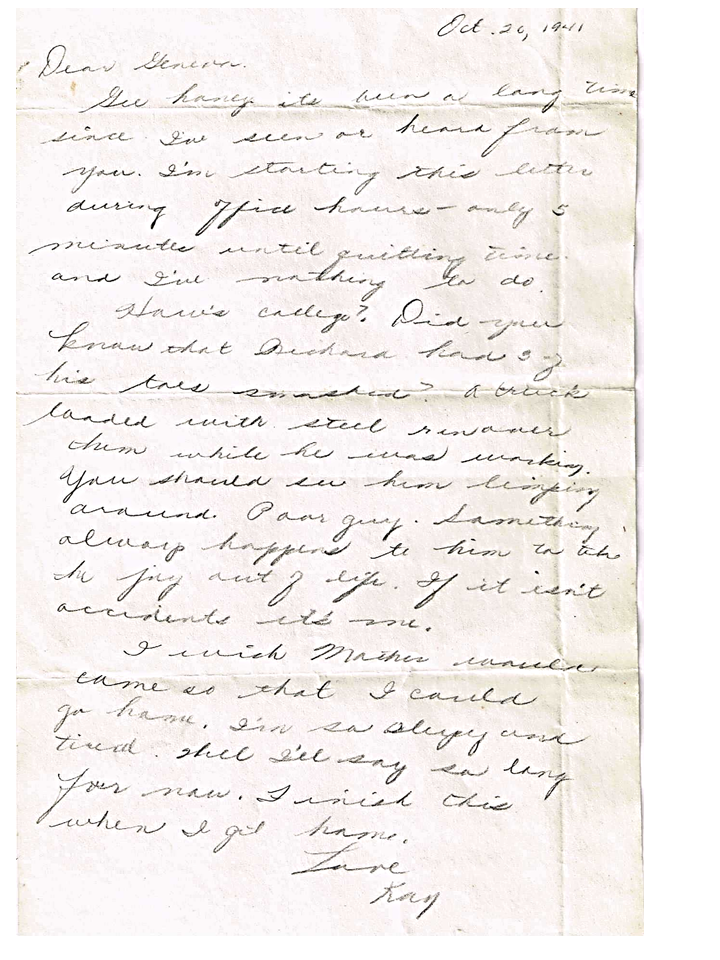 Oct. 20, 1941
Dear Geneva.
Gee honey its been a long time
since I've seen or heard from
you. I'm starting this letter
during office hours - only 5
minutes until quitting time
and I've nothing to do.
How's college? Did you
know that Richard had 3 of
his toes smashed? A truck
loaded with steel ran over
them while he was working.
You should see him limping
around. Poor guy. Something
always happens to him to take
the joy out of life. If it isn't
accidents it's me.
I wish Mother would
come so that I could
go home. I'm so sleepy and
tired. Well I'll say so long
for now. I finish this
when I get home.
Love
Kay